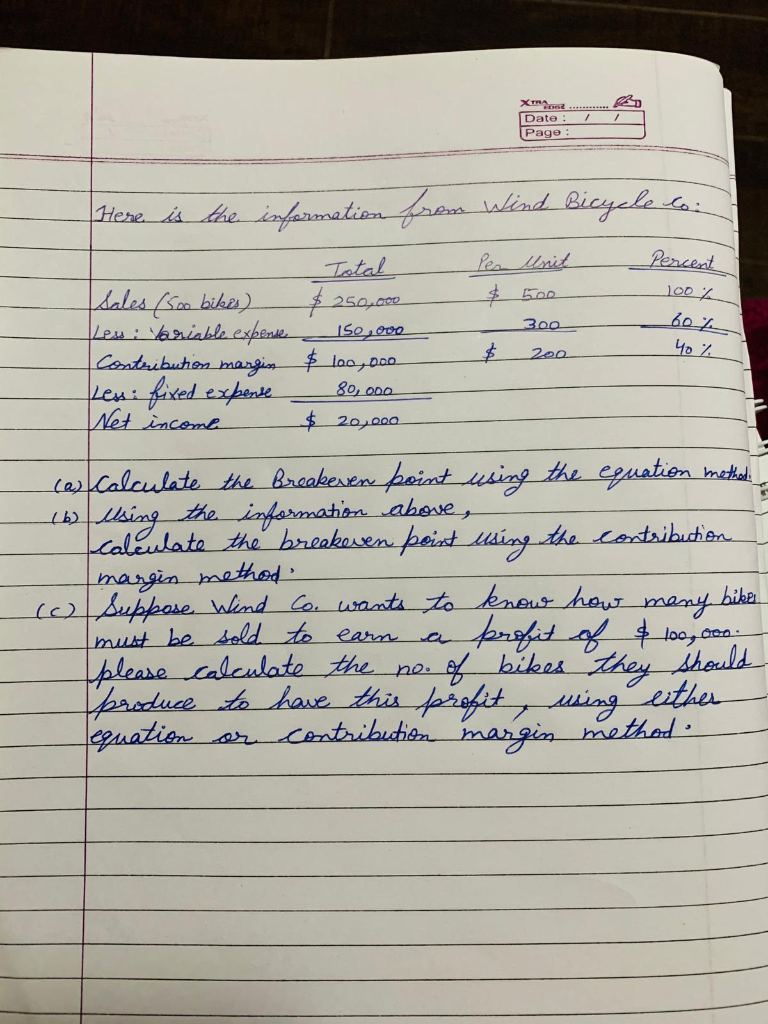 XTRA EDGE ............
Date : / /
Page :
Here is the information from Wind Bicycle Co:
Total Per Unit Percent
Sales (500 bikes) $ 250,000 $ 500 100 %
Less : Variable expense 150,000 300 60 %
Contribution margin $ 100,000 $ 200 40 %
Less: fixed expense 80,000
Net income $ 20,000
(a) Calculate the Breakeven point using the equation method.
(b) Using the information above,
calculate the breakeven point using the contribution
margin method.
(c) Suppose Wind Co. wants to know how many bikes
must be sold to earn a profit of $ 100,000.
please calculate the no. of bikes they should
produce to have this profit, using either
equation or contribution margin method.